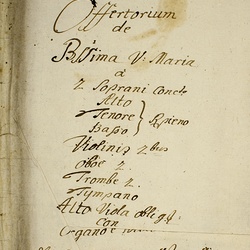 Offertorium
de
B̃ssima V: Maria
à
2 Soprani conc:
Alto
Tenore
Basso
Ripieno
Violinis 2bus
Oboe 2.
Trombe 2.
Tympano
Alto Viola oblig:
con
Organo